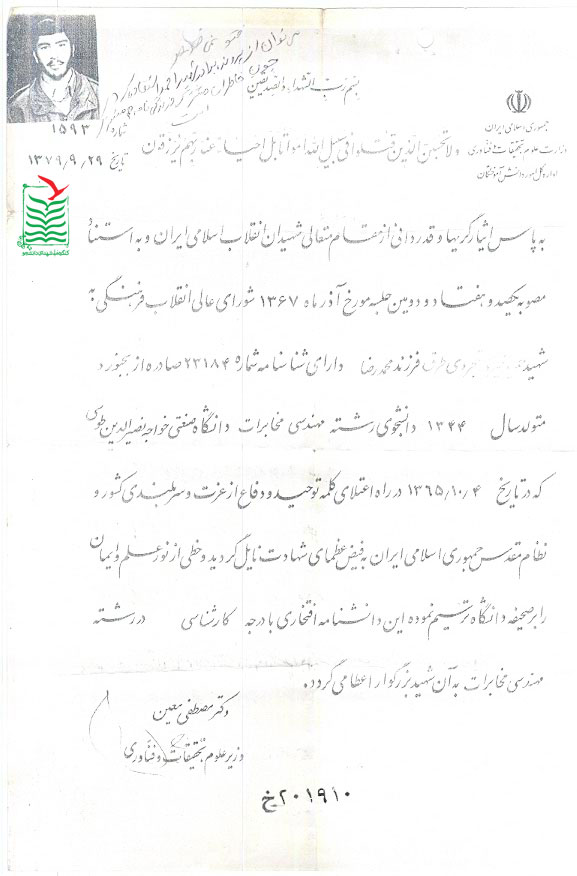 بسم رب الشهداء والصدیقین
جمهوری اسلامی ایران
وزارت علوم تحقیقات و فناوری
اداره کل امور دانش آموختگان
شماره ۱۵۹۳
تاریخ ۱۳۷۹٫۹٫۲۹
ولا تحسبن الذین قتلوا فی سبیل الله امواتا بل احیاء عند ربهم یرزقون
به پاس ایثارگریها و قدردانی از مقام متعالی شهیدان انقلاب اسلامی ایران و به استناد
مصوبه یکصد و هفتاد و دومین جلسه مورخ آذر ماه ۱۳۶۷ شورای عالی انقلاب فرهنگی به
شهید فرزند محمدرضا دارای شناسنامه شماره ۲۳۱۸۴ صادره از بجنورد
متولد سال ۱۳۴۴ دانشجوی رشته مهندسی مخابرات دانشگاه صنعتی خواجه نصیرالدین طوسی
که در تاریخ ۱۳۶۵٫۱۰٫۴ در راه اعتلای کلمه توحید و دفاع از عزت و سربلندی کشور و
نظام مقدس جمهوری اسلامی ایران به فیض عظمای شهادت نایل گردید و خطی از نور علم و ایمان
را بر صحیفه دانشگاه ترسیم نموده این دانشنامه افتخاری با درجه کارشناسی در رشته
مهندسی مخابرات به آن شهید بزرگوار اعطا می گردد.
دکتر مصطفی معین
وزیر علوم تحقیقات و فناوری
۲۰۱۹۱۰ خ